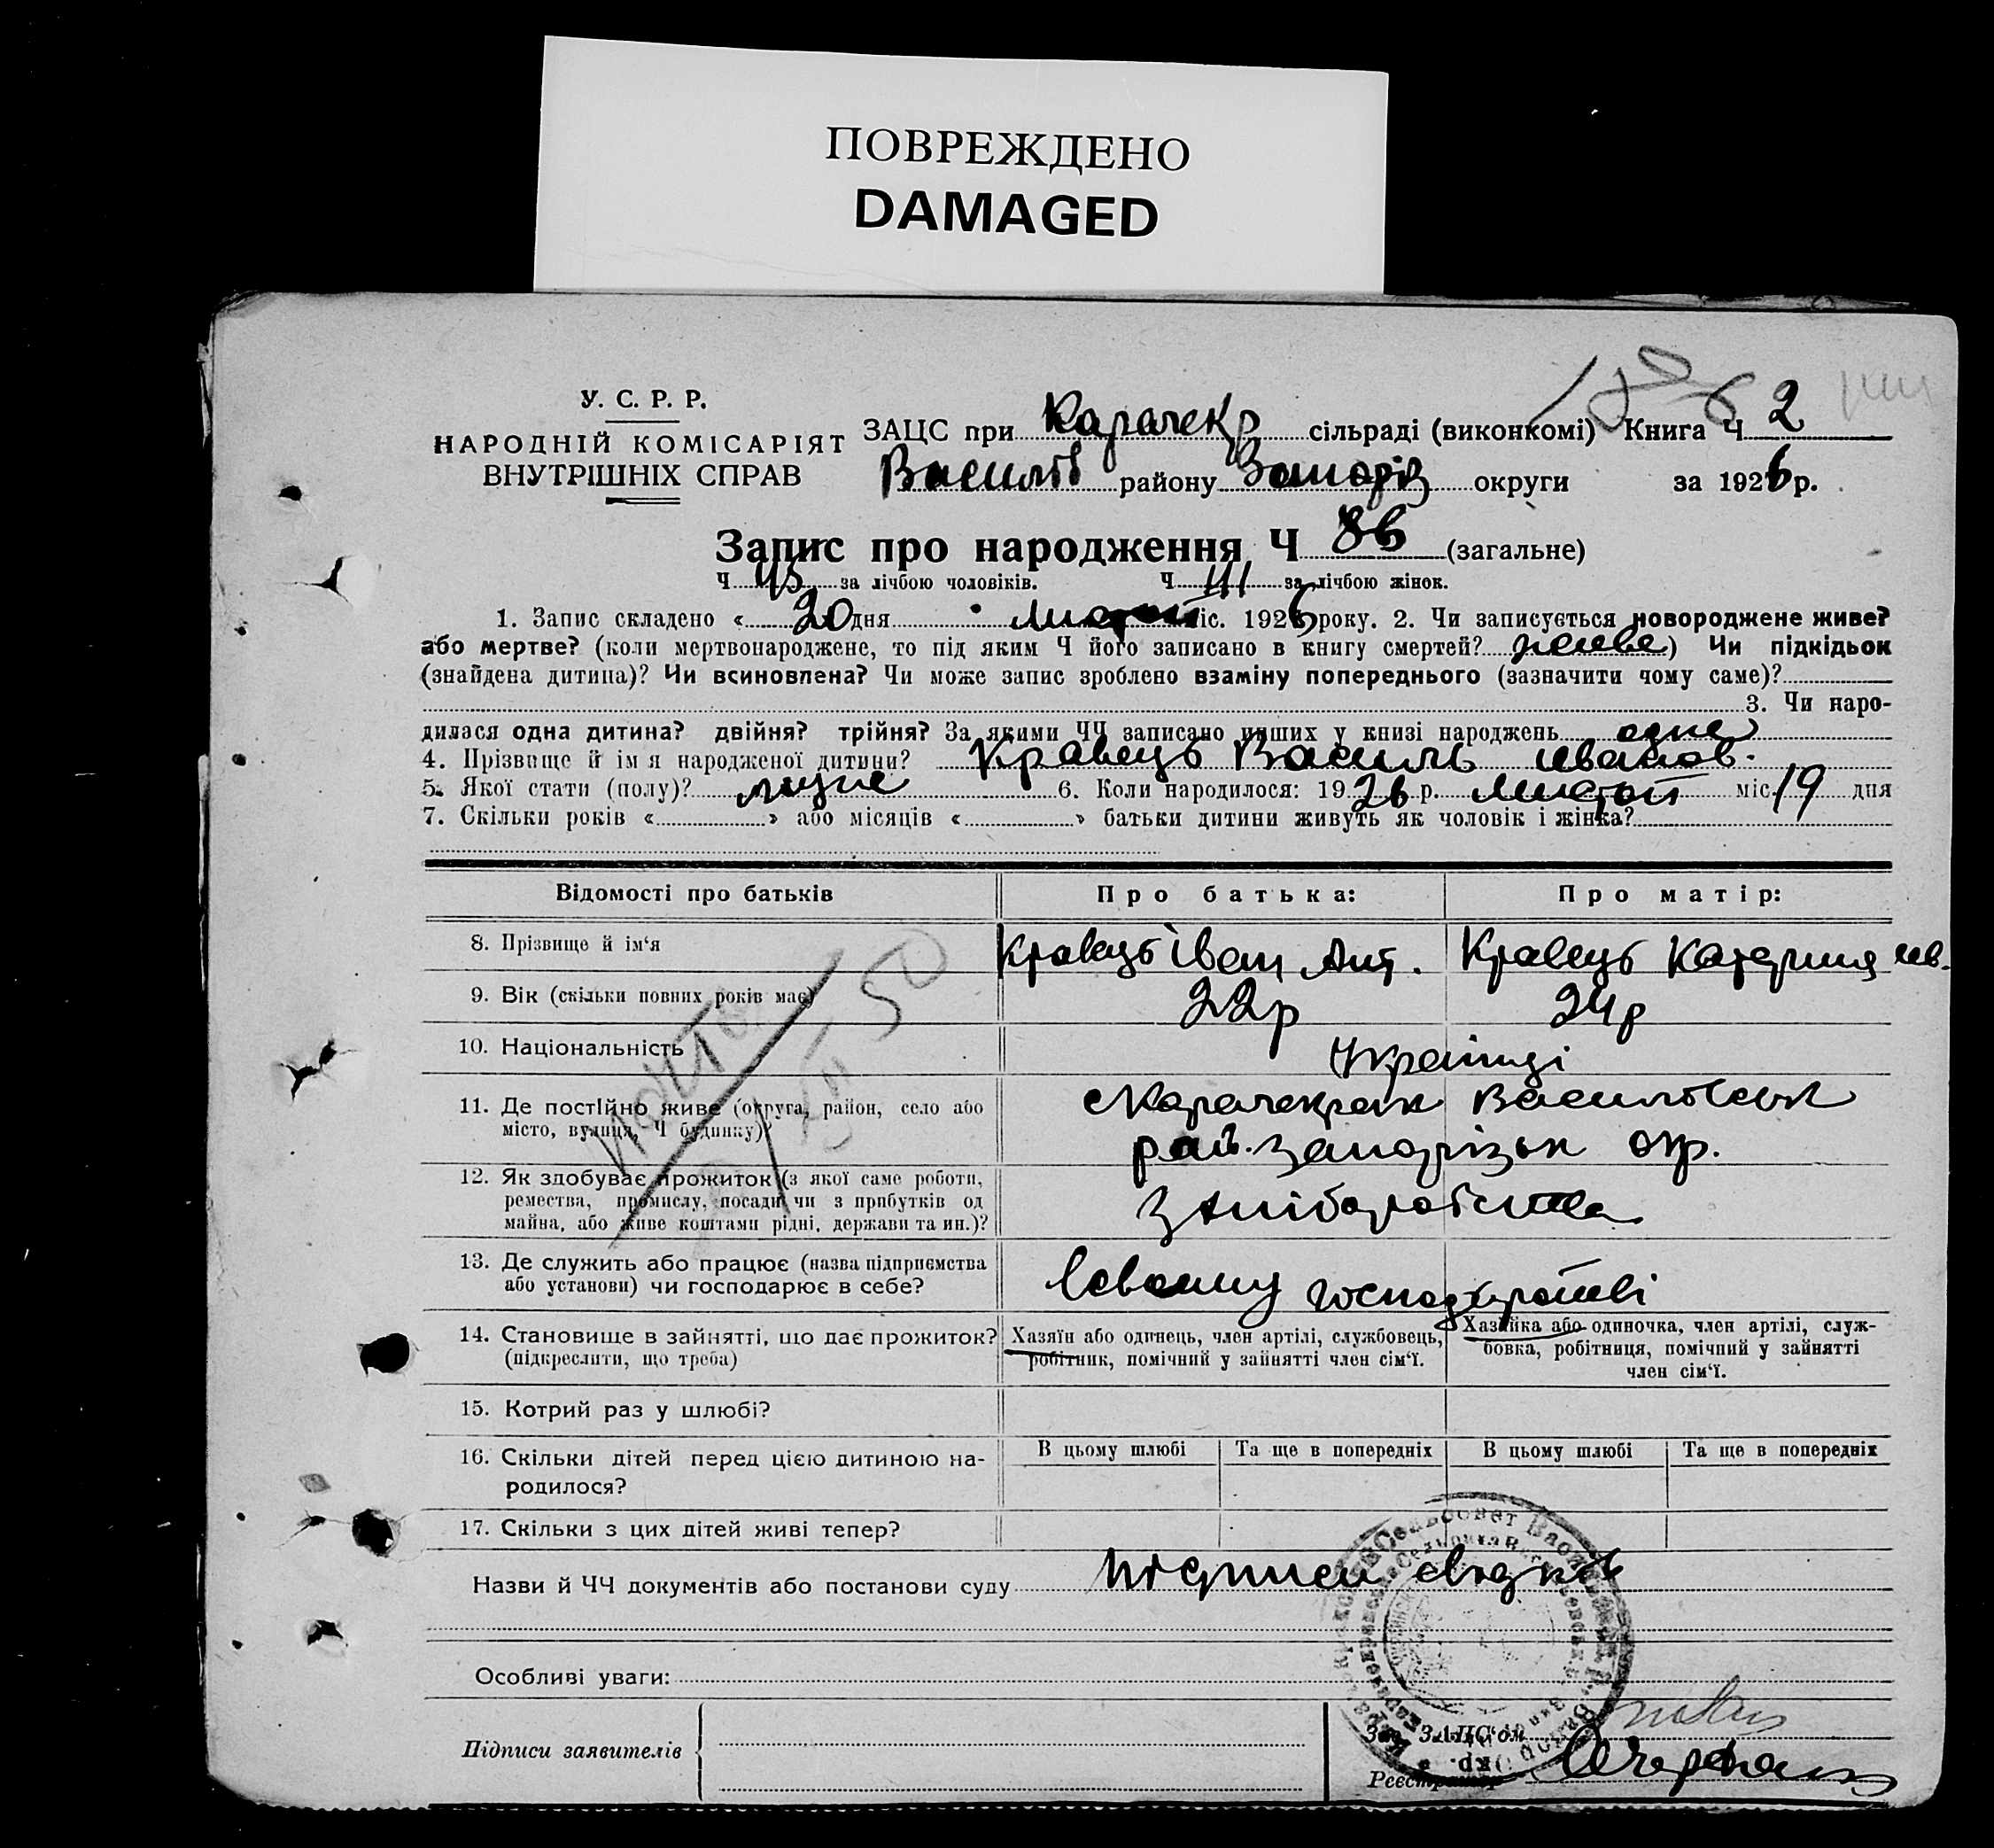 ПОВРЕЖДЕНО
DAMAGED
У. С. Р. Р.
НАРОДНІЙ КОМІСАРІЯТ
ВНУТРІШНІХ СПРАВ
ЗАЦС при Карачекр сільраді (виконкомі) Книга Ч 2
Василів району Запоріз округи за 1926 р.
Запис про народження Ч 86 (загальне)
Ч 45 за лічбою чоловіків. Ч 41 за лічбою жінок.
1. Запис складено « 20 дня Листоп міс. 1926 року. 2. Чи записується новороджене живе?
або мертве? (коли мертвонароджене, то під яким Ч його записано в книгу смертей? живе) Чи підкідьок
(знайдена дитина)? Чи всиновлена? Чи може запис зроблено взаміну попереднього (зазначити чому саме)?
3. Чи наро-
дилася одна дитина? двійня? трійня? За якими ЧЧ записано инших у книзі народжень одне
4. Прізвище й ім я народженої дитини? Кравець Василь Иванов.
5. Якої стати (полу)? муже 6. Коли народилося: 1926 р. Листоп міс. 19 дня
7. Скільки років « » або місяців « » батьки дитини живуть як чоловік і жінка?
Відомості про батьків Про батька: Про матір:
8. Прізвище й ім'я Кравець Іван Ант. Кравець Катерина
9. Вік (скільки повних років має) 22р 24р
10. Національність Українці
11. Де постійно живе (округа, район, село або
місто, вулиця, Ч будинку)?
Карачекрак Василівськ
рай. Запорізьк окр.
12. Як здобуває прожиток (з якої саме роботи,
ремества, промислу, посади чи з прибутків од
майна, або живе коштами рідні, держави та ин.)?
з хліборобства
13. Де служить або працює (назва підприємства
або установи) чи господарює в себе?
в своєму господарстві
14. Становище в зайнятті, що дає прожиток?
(підкреслити, що треба)
Хазяїн або одинець, член артілі, службовець,
робітник, помічний у зайнятті член сім'ї.
Хазяйка або одиночка, член артілі, служ-
бовка, робітниця, помічний у зайнятті
член сім'ї.
15. Котрий раз у шлюбі?
16. Скільки дітей перед цією дитиною на-
родилося?
В цьому шлюбі Та ще в попередніх В цьому шлюбі Та ще в попередніх
17. Скільки з цих дітей живі тепер?
Назви й ЧЧ документів або постанови суду підписи свідків
Особливі уваги:
Підписи заявителів
Зав. ЗАЦС'ом
Реєстратор